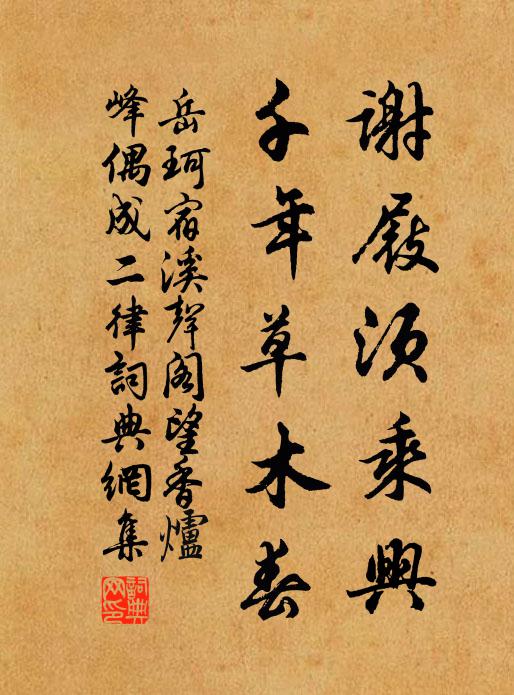 謝屐須乘興
千年草木春
岳珂宿溪聲閣望香爐
峰偶成二律詞典網集
詞典
网印